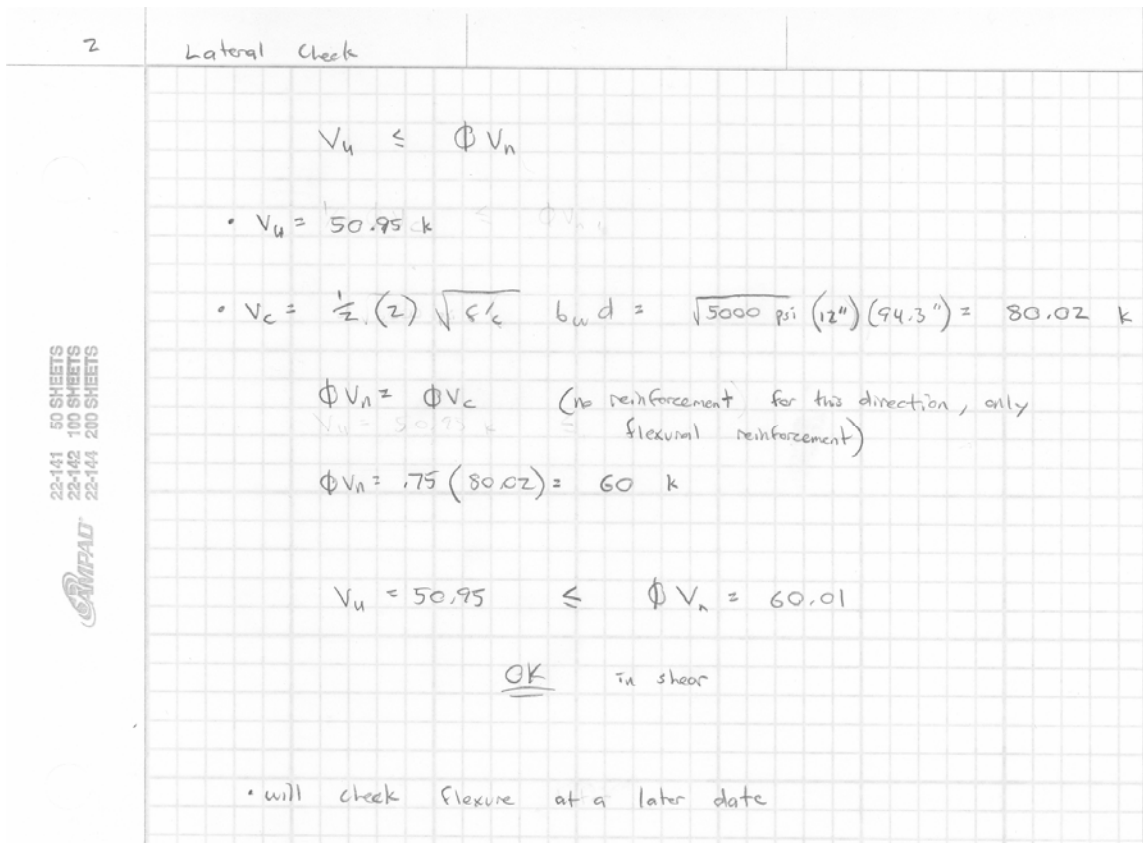 2
Lateral Check
Vu ≤ ΦVn
• Vu = 50.95 k
• Vc = 1/2 (2) √f'c bw d = √5000 psi (12") (94.3") = 80.02 k
ΦVn = ΦVc (no reinforcement for this direction, only
flexural reinforcement)
ΦVn = .75 (80.02) = 60 k
Vu = 50.95 ≤ ΦVn = 60.01
OK in shear
• will check flexure at a later date
22-141 50 SHEETS
22-142 100 SHEETS
22-144 200 SHEETS
AMPAD